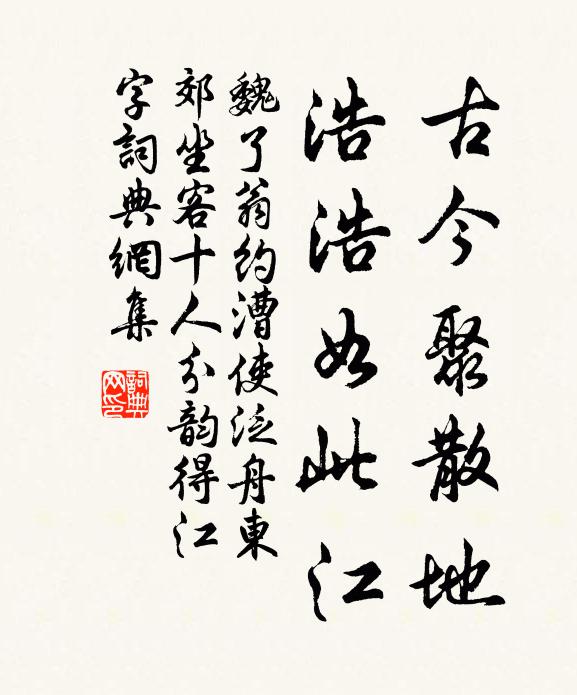 古今聚散地
浩浩如此江
魏了翁約漕使泛舟東
郊坐客十人分韵得江
字詞典網集
詞典
网印